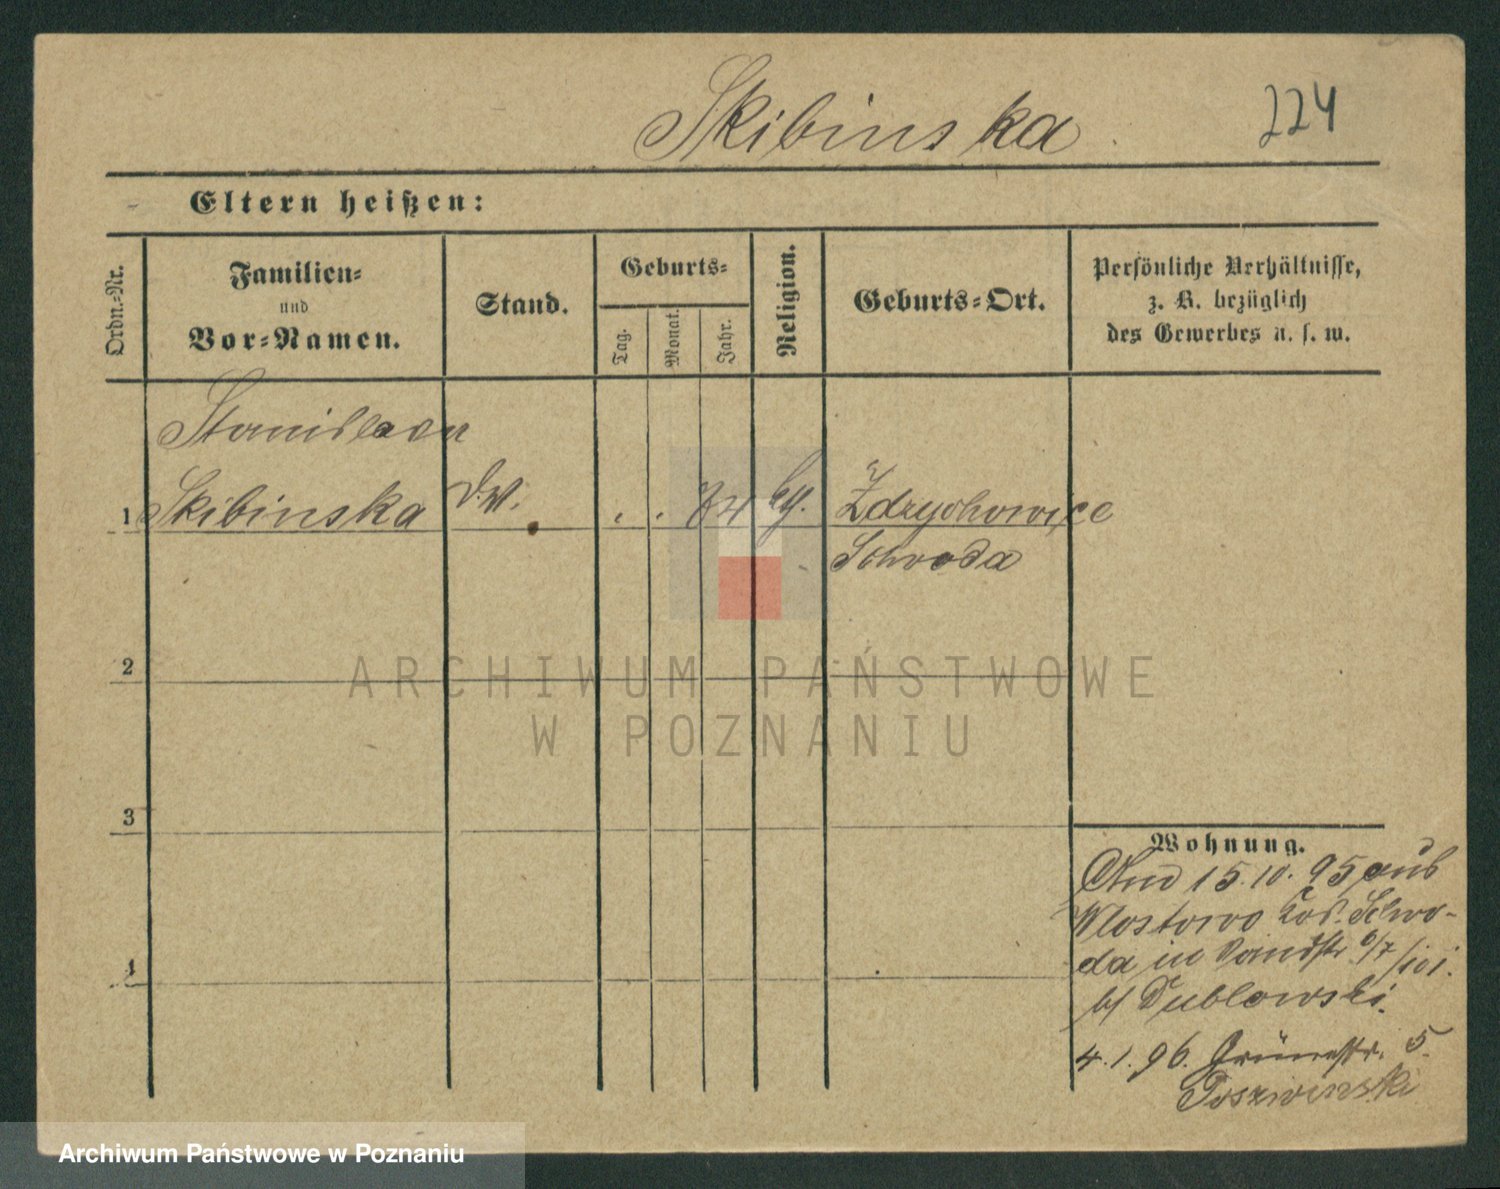 Skibinska
224
Eltern heißen:
Ordn.-Nr.
Familien-
und
Vor-Namen.
Stand.
Geburts-
Tag.
Monat.
Jahr.
Religion.
Geburts-Ort.
Persönliche Verhältnisse,
z. B. bezüglich
des Gewerbes u. s. w.
Stanislawa
1 Skibinska
. . 74 kg. Zdrychowice
Schroda
2
3
4
Wohnung.
15.10.95 aus
Wlostowo Schro-
da in 6/7
b/ Dublowski.
4.1.96. Grünestr. 5.
ARCHIWUM PAŃSTWOWE
W POZNANIU
Archiwum Państwowe w Poznaniu